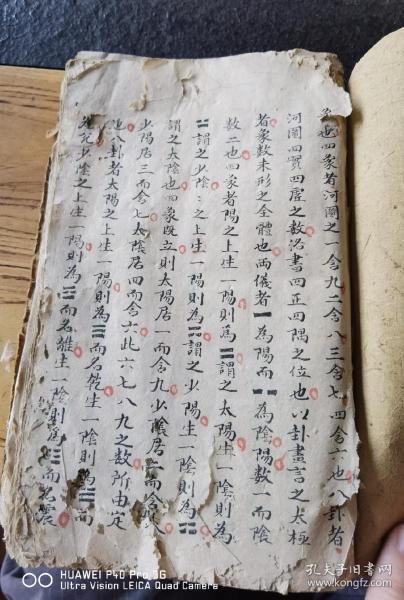 也四象者河圖之一含九二含八三含七四含六也八卦者
河圖四實四虛之數洛書四正四隅之位也以卦畫言之太極
者象數未形之全體也兩儀者⚊為陽而⚋為陰陽數一而陰
數二也四象者陽之上生一陽則為⚌謂之太陽生一陰則為
⚍謂之少陰〻之上生一陽則為⚎謂之少陽生一陰則為⚏
謂之太陰也四象既立則太陽居一而含九少陰居二而含八
少陽居三而含七太陰居四而含六此六七八九之數所由定
也八卦者太陽之上生一陽則為☰而名乾生一陰則為☱而
名兌少陰之上生一陽則為☲而名離生一陰則為☳而名震
HUAWEI P40 Pro 5G
Ultra Vision LEICA Quad Camera
孔夫子旧书网
www.kongfz.com